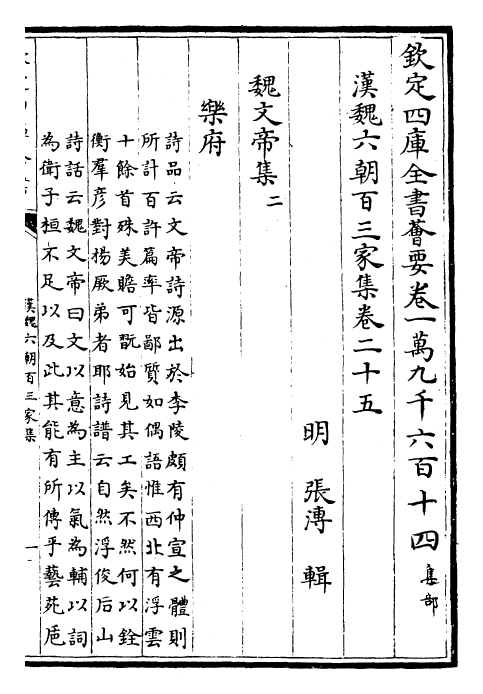 欽定四庫全書薈要卷一萬九千六百十四 集部
漢魏六朝百三家集卷二十五
明 張溥 輯
魏文帝集二
樂府
詩品云文帝詩源出於李陵頗有仲宣之體則
所計百許篇率皆鄙質如偶語惟西北有浮雲
十餘首殊美贍可翫始見其工矣不然何以銓
衡羣彦對揚厥弟者耶詩譜云自然浮俊后山
詩話云魏文帝曰文以意為主以氣為輔以詞
為衛子桓不足以及此其能有所傳乎藝苑巵
漢魏六朝百三家集 一